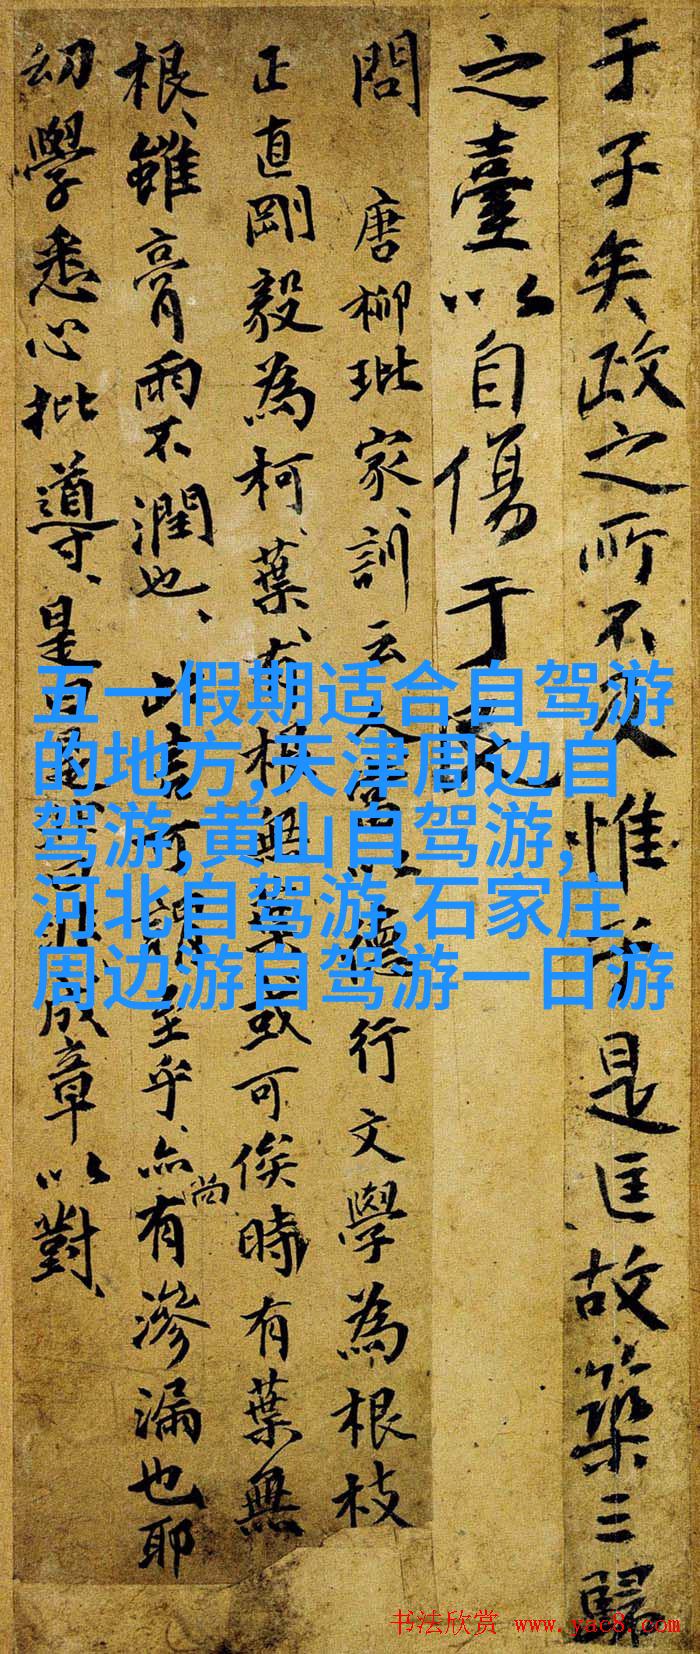 于子矣政之所不惟是匡故築三歸
之臺以自傷于民
問 唐柳玭家訓云德行文學為根枝
正直剛毅為柯葉有根無葉或可俟時有葉無
根雖膏雨不潤也此言可謂至乎亦尚有滲漏也耶
幼學悉心批導是成章以對
五一假期适合自驾游
的地方,天津周边自
驾游,黄山自驾游,
河北自驾游,石家庄
周边游自驾游一日游
书法欣赏 www.yac8.com